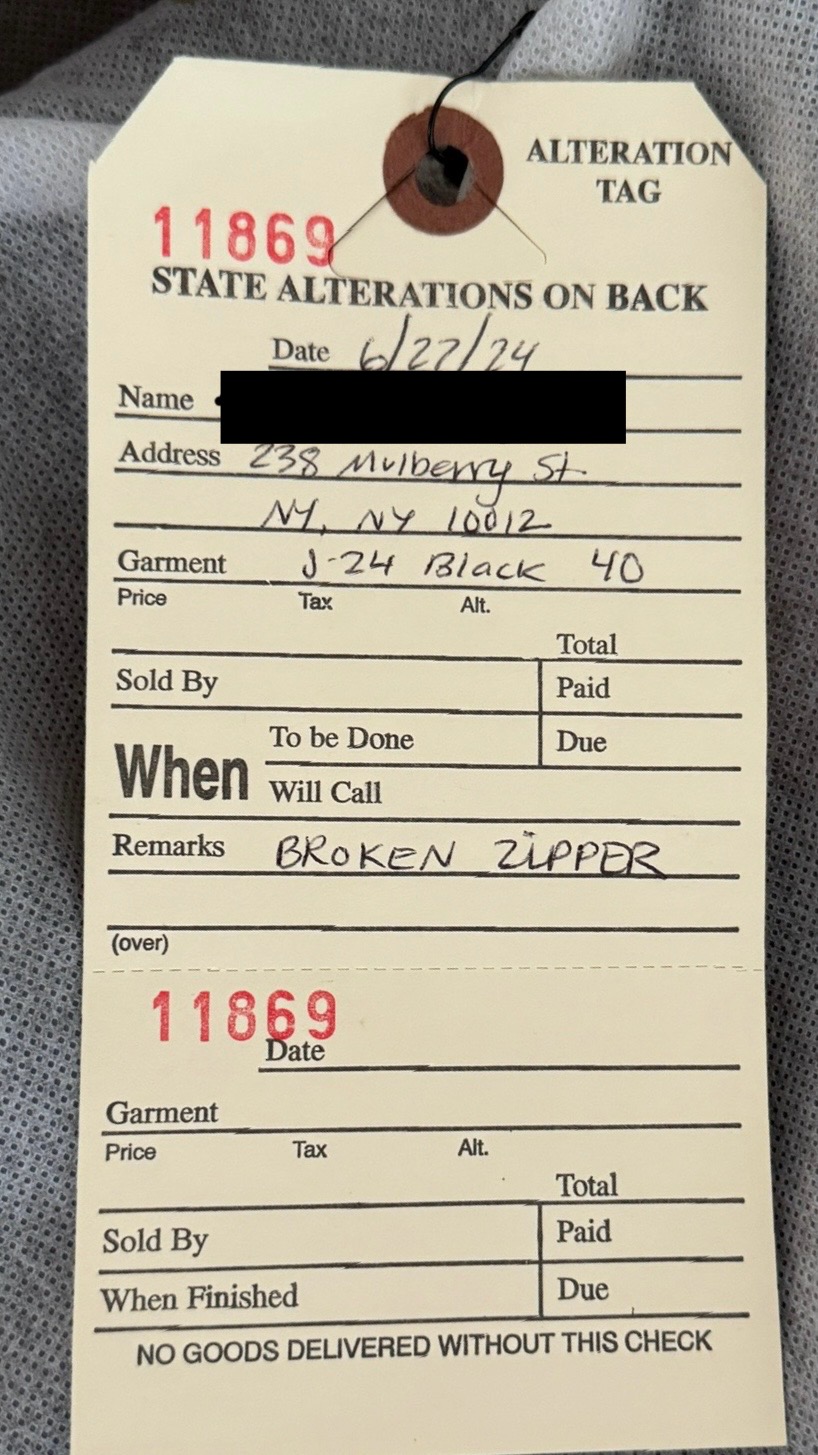 ALTERATION
TAG
11869
STATE ALTERATIONS ON BACK
Date 6/27/24
Name
Address 238 Mulberry St.
NY, NY 10012
Garment J-24 Black 40
Price Tax Alt.
Total
Sold By Paid
When To be Done Due
Will Call
Remarks BROKEN ZIPPER
(over)
11869
Date
Garment
Price Tax Alt.
Total
Sold By Paid
When Finished Due
NO GOODS DELIVERED WITHOUT THIS CHECK